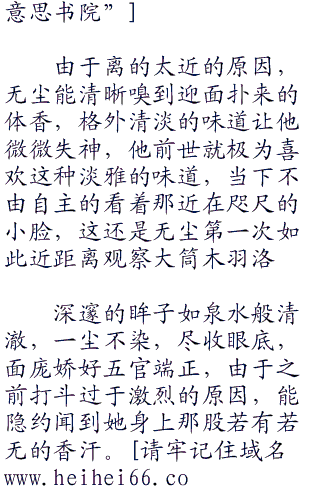 意思书院”]
由于离的太近的原因，
无尘能清晰嗅到迎面扑来的
体香，格外清淡的味道让他
微微失神，他前世就极为喜
欢这种淡雅的味道，当下不
由自主的看着那近在咫尺的
小脸，这还是无尘第一次如
此近距离观察大筒木羽洛
深邃的眸子如泉水般清
澈，一尘不染，尽收眼底，
面庞娇好五官端正，由于之
前打斗过于激烈的原因，能
隐约闻到她身上那股若有若
无的香汗。[请牢记住域名
www.heihei66.co